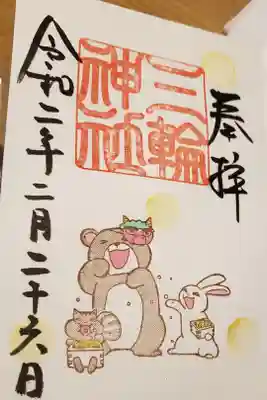 奉拝
三輪
神社
令和二年二月二十六日